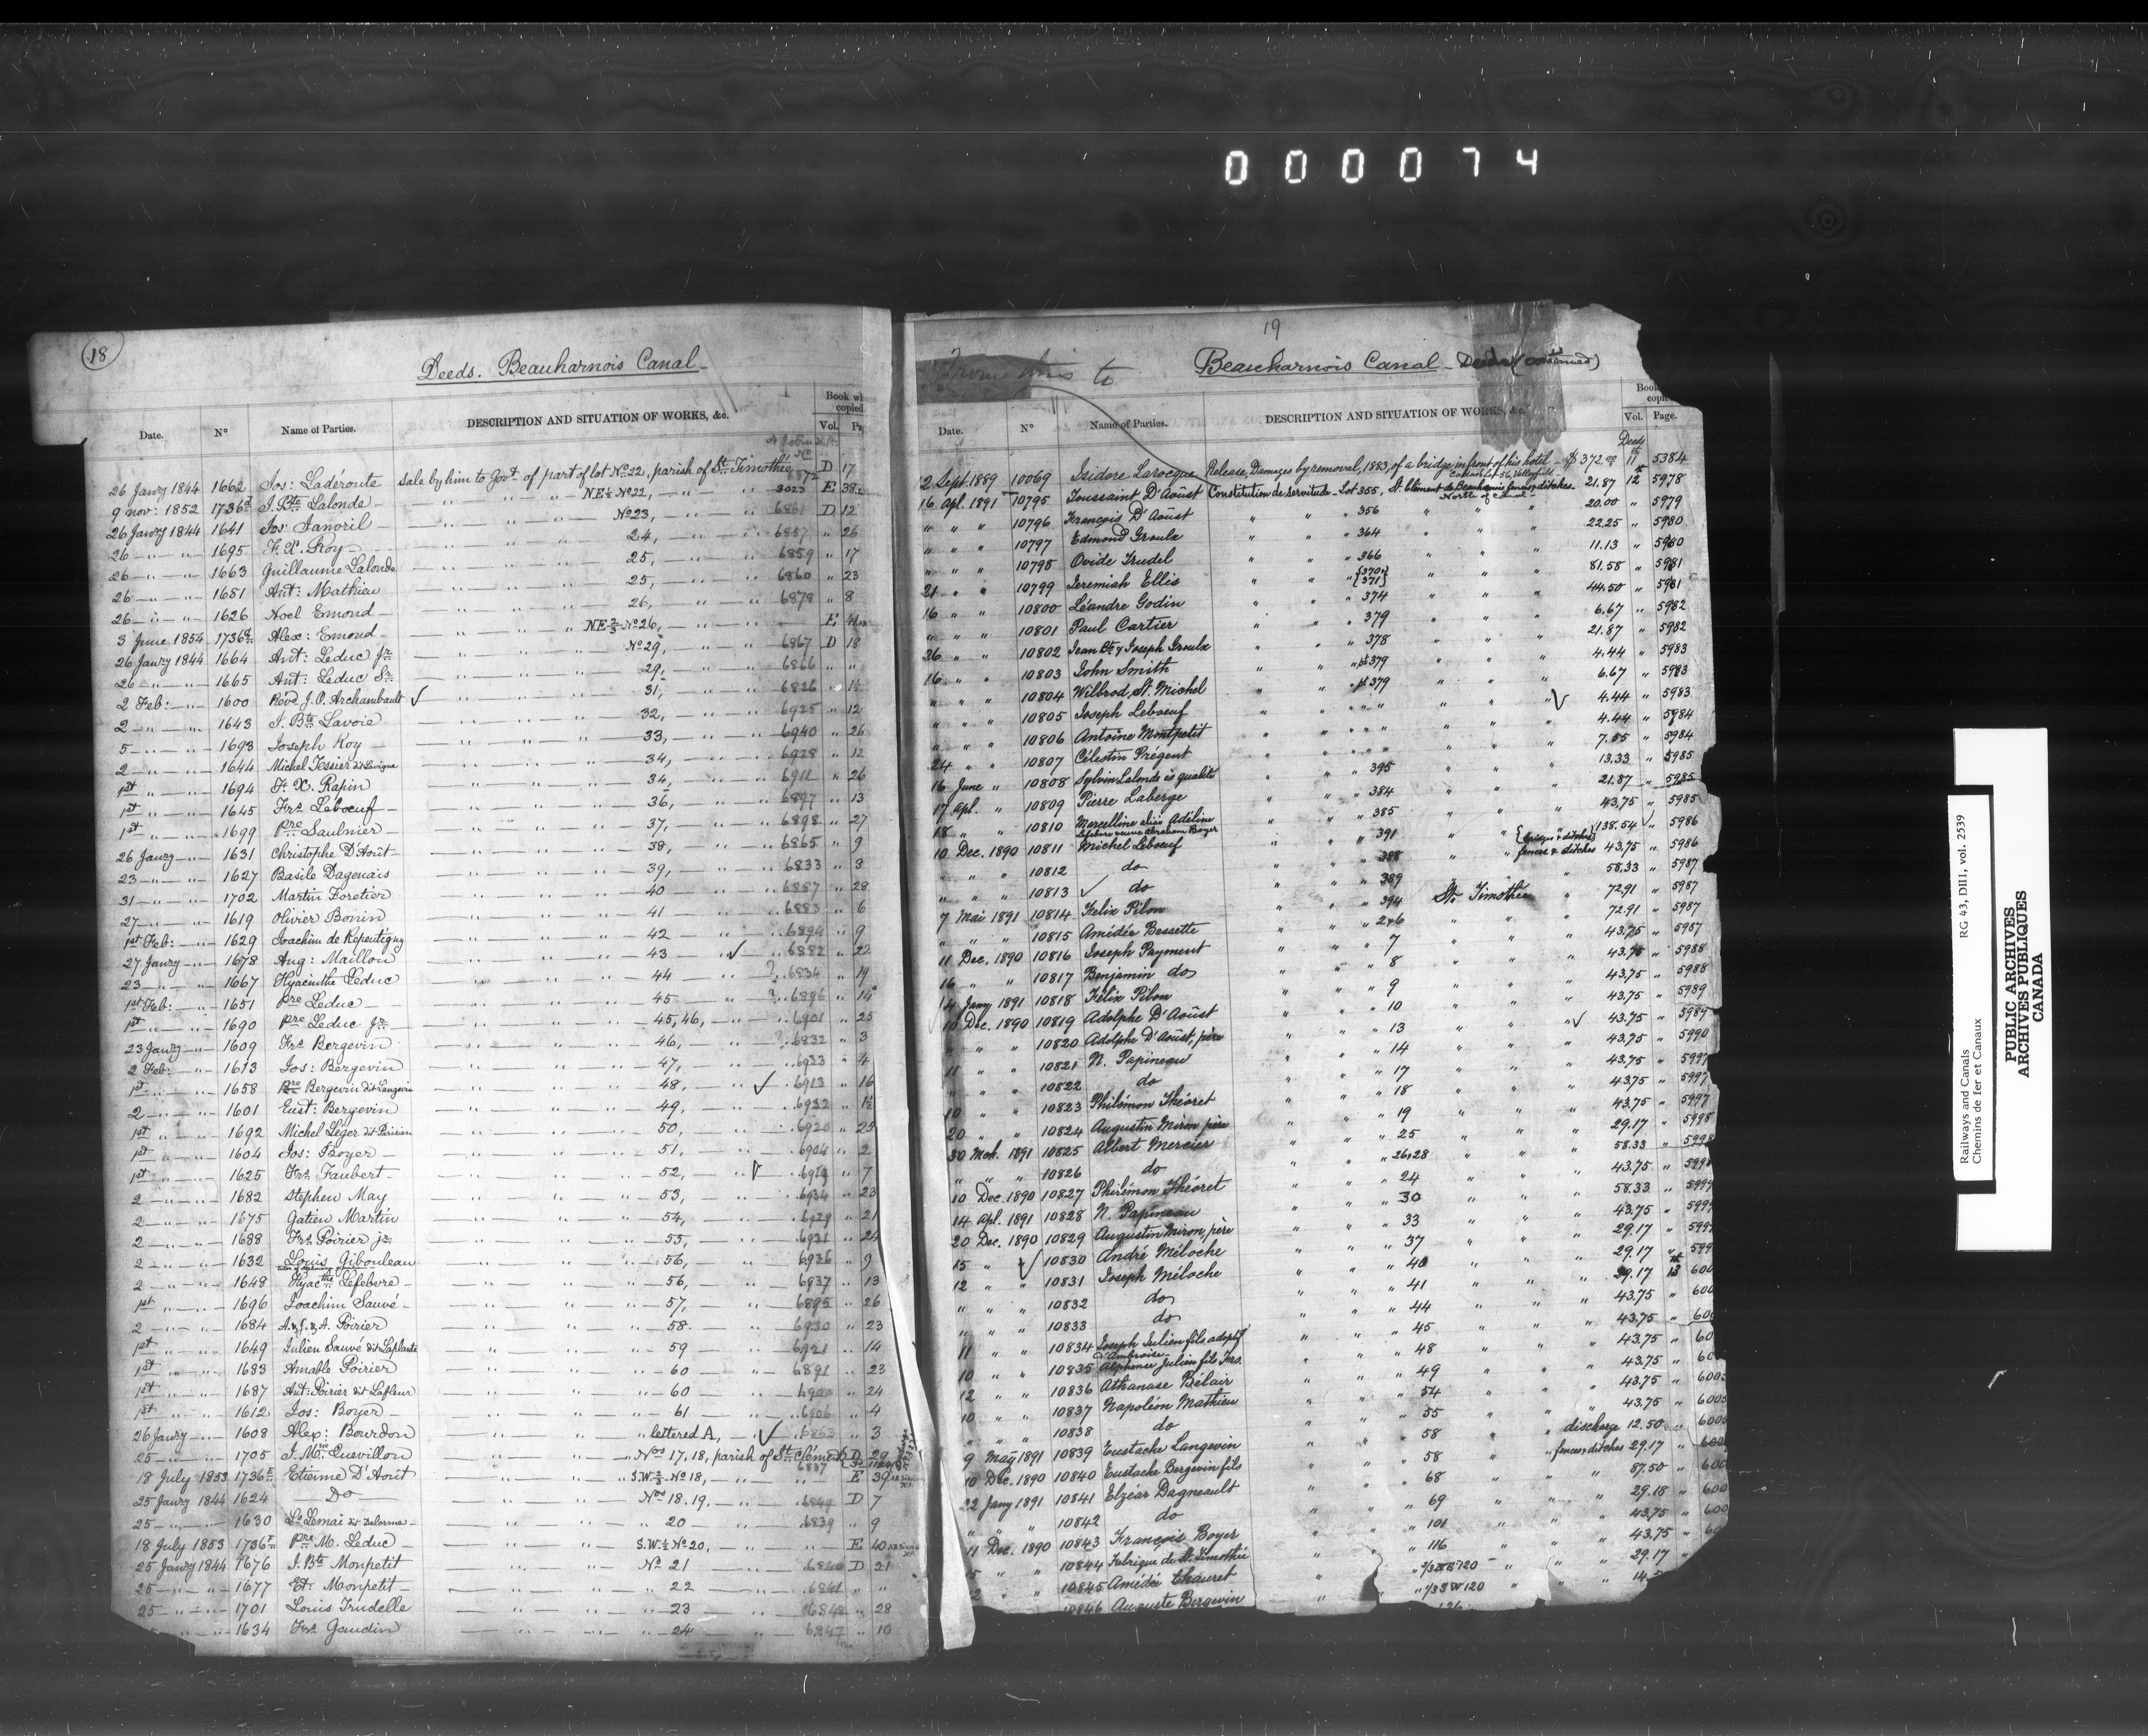 000074
18
Deeds. Beauharnois Canal
Date. N° Name of Parties. DESCRIPTION AND SITUATION OF WORKS, &c. Book wh copied Vol. Pa
26 Janry 1844 1662 Jos: Ladéroute Sale by him to Govt. of part of lot No. 22, parish of St. Timothée 6872 D 17
9 nov: 1852 1736 J. Bte Lalonde " " " NE½ No. 22, " " 3023 E 38
26 Janry 1844 1641 Jos Janvril " " " No 23, " " 6861 D 12
26 " " 1695 F. X. Roy " " " 24, " " 6857 " 26
26 " " 1663 Guillaume Lalonde " " " 25, " " 6859 " 17
26 " " 1681 Ant: Mathieu " " " 25, " " 6860 " 23
26 " " 1626 Noel Emond " " " 26, " " 6878 " 8
3 June 1854 1736 Alex: Emond " " " NE⅔ No. 26, " " E
26 Janry 1844 1664 Ant: Leduc Jr. " " " No 29, " " 6867 D 18
26 " " 1665 Ant: Leduc Sr. " " " 29, " " 6866 " "
2 Feb: " 1600 Révd J. O. Archambault ✓ " " " 31, " " 6826 " 1½
2 " " 1643 J. Bte Lavoie " " " 32, " " 6925 " 12
5 " " 1693 Joseph Roy " " " 33, " " 6940 " 26
2 " " 1644 Michel Tessier dit Lavigne " " " 34, " " 6928 " 12
1st " " 1694 F. X. Rapin " " " 34, " " 6911 " 26
1st " " 1645 Frs. Leboeuf " " " 36, " " 6897 " 13
1st " " 1699 Pre Saulnier " " " 37, " " 6898 " 27
26 Janry " 1631 Christophe D'Août " " " 38, " " 6865 " 9
23 " " 1627 Basile Dagenais " " " 39, " " 6833 " 8
31 " " 1702 Martin Foretier " " " 40 " " 6887 " 28
27 " " 1619 Olivier Bonin " " " 41 " " 6883 " 6
1st Feb: " 1629 Joachim de Repentigny " " " 42 " " 6894 " 9
27 Janry " 1678 Aug: Maillou " " " 43 " ✓ " 6882 " 22
23 " " 1667 Hyacinthe Leduc " " " 44 " ? " 6834 " 19
1st Feb: " 1651 Pre Leduc " " " 45 " ? " 6896 " 14
1st " " 1690 Pre Leduc Jr. " " " 45, 46, " " 6901 " 25
23 Janry " 1609 Frs. Bergevin " " " 46, " " 6832 " 3
2 Feb: " 1613 Jos: Bergevin " " " 47, " " 6933 " 4
1st " " 1658 Pre Bergevin dit Langevin " " " 48, " ✓ " 6913 " 16
2 " " 1601 Eust: Bergevin " " " 49, " " 6932 " 1½
1st " " 1692 Michel Léger dit Parisien " " " 50, " " 6920 " 25
1st " " 1604 Jos: Boyer " " " 51, " " 6904 " 2
1st " " 1625 Frs. Faubert " " " 52, " ✓ " 6919 " 7
2 " " 1682 Stephen May " " " 53, " " 6934 " 23
2 " " 1675 Gatien Martin " " " 54, " " 6929 " 21
2 " " 1688 Frs. Poirier jr. " " " 55, " " 6931 " 24
2 " " 1632 Louis Gibouleau " " " 56, " " 6936 " 9
2 " " 1648 Hyacthe Lefebvre " " " 56, " " 6937 " 13
1st " " 1696 Joachim Sauvé " " " 57, " " 6895 " 26
2 " " 1684 A. & J. & A. Poirier " " " 58. " " 6930 " 23
1st " " 1649 Julien Sauvé dit Laplante " " " 59 " " 6921 " 14
1st " " 1683 Amable Poirier " " " 60 " " 6891 " 23
1st " " 1687 Ant: Poirier dit Lafleur " " " 60 " " 6900 " 24
1st " " 1612 Jos: Boyer " " " 61 " " 6906 " 4
26 Janry " 1608 Alex: Bourdon " " " lettered A, " ✓ " 6863 " 3
25 " " 1705 J. Mce Quevillon " " " Nos 17, 18, parish of St. Clément 6837 D 29
18 July 1853 1736 Etienne D'Aoút " " S.W.⅔ No. 18, " " E 39
25 Janry 1844 1624 Do " " " Nos 18. 19. " " 6849 D 7
25 " " 1630 Ls. Lemai dit Delorme " " " 20 " " 6839 " 9
18 July 1853 1736 Pre M. Leduc " " S.W.½ No. 20, " " E 40
25 Janry 1844 1676 J. Bte Monpetit " " " No 21 " " 6840 D 21
25 " " 1677 Et: Monpetit " " " 22 " " 6841 " "
25 " " 1701 Louis Trudelle " " " 23 " " 6848 " 28
1634 Frs. Gaudin " " " 24 " " 6847 " 10
19
From this to
Beauharnois Canal - Deeds (continued)
Date. N° Name of Parties. DESCRIPTION AND SITUATION OF WORKS, &c. Book copied Vol. Page.
Deeds
2 Sept 1889 10069 Isidore Larocque Release, Damages by removal, 1883, of a bridge in front of his hotel - $372.00 11 5384
16 Apl. 1891 10795 Toussaint D'Aoûst Constitution de Servitude - Lot 355, St. Clément de Beauharnois fences & ditches North of Canal 21.87 12 5978
" " " 10796 François D'Aoûst " " " 356 " " " 20.00 " 5979
" " " 10797 Edmond Groulx " " " 364 " " " 22.25 " 5980
" " " 10798 Ovide Trudel " " " 366 " " " 11.13 " 5980
21 " " 10799 Jeremiah Ellis " " " {370 371} " " " 81.58 " 5981
16 " " 10800 Léandre Godin " " " 374 " " " 44.50 " 5981
" " " 10801 Paul Cartier " " " 379 " " " 6.67 " 5982
26 " " 10802 Jean Bte & Joseph Groulx " " " 378 " " " 21.87 " 5982
16 " " 10803 John Smith " " " pt 379 " " " 4.44 " 5983
" " " 10804 Wilbrod St. Michel " " " pt 379 " " " 6.67 " 5983
" " " 10805 Joseph Leboeuf " " " " " " " ✓ 4.44 " 5983
" " " 10806 Antoine Montpetit " " " " " " " 4.44 " 5984
24 " " 10807 Célestin Prégent " " " " " " " 7.55 " 5984
16 June " 10808 Sylvin Lalonde ès qualité " " " 395 " " " 13.33 " 5985
17 Apl. " 10809 Pierre Laberge " " " 384 " " " 21.87 " 5985
18 " " 10810 Marcelline alias Adéline Lefebvre veuve Abraham Boyer " " " 385 " " " 43.75 " 5985
10 Dec. 1890 10811 Michel Leboeuf " " " 391 " " {bridges & ditches} 138.54 ✓ " 5986
" " " 10812 do " " " 388 " " fences & ditches 43.75 " 5986
" " " 10813 ✓ do " " " 389 " " " 58.33 " 5987
7 Mai 1891 10814 Felix Pilon " " " 394 St. Timothée " 72.91 " 5987
" " " 10815 Amédée Bessette " " " 2 & 6 " " 72.91 " 5987
11 Dec. 1890 10816 Joseph Payment " " " 7 " " 43.75 " 5987
16 " " 10817 Benjamin do " " " 8 " " 43.75 " 5988
14 Jany 1891 10818 Félix Pilon " " " 9 " " 43.75 " 5988
10 Dec. 1890 10819 Adolphe D'Aoûst " " " 10 " " 43.75 " 5989
" " " 10820 Adolphe D'Aoûst, père " " " 13 " " ✓ 43.75 " 5989
11 " " 10821 N. Papineau " " " 14 " " 43.75 " 5990
" " " 10822 do " " " 17 " " 43.75 " 5997
10 " " 10823 Philémon Théoret " " " 18 " " 43.75 " 5997
20 " " 10824 Augustin Miron père " " " 19 " " 43.75 " 5997
30 Mch. 1891 10825 Albert Mercier " " " 25 " " 29.17 " 5998
" " " 10826 do " " " 26 & 28 " " 58.33 " 5998
10 Dec. 1890 10827 Philémon Théoret " " " 24 " " 43.75 " 5998
14 Apl. 1891 10828 N. Papineau " " " 30 " " 58.33 " 5999
20 Dec. 1890 10829 Augustin Miron, père " " " 33 " " 43.75 " 5999
15 " " ✓ 10830 André Méloche " " " 37 " " 29.17 " 599
12 " " 10831 Joseph Méloche " " " 40 " " 29.17 " 599
" " " 10832 do " " " 41 " " 29.17 13 600
" " " 10833 do " " " 44 " " 43.75 " 600
11 " " 10834 Joseph Julien fils adoptif d'Ambroise " " " 45 " " 43.75 " 600
10 " " 10835 Alphonse Julien fils Frs. " " " 48 " " 43.75 " 60
12 " " 10836 Athanase Bélair " " " 49 " " 43.75 " 60
10 " " 10837 Napoléon Mathieu " " " 54 " " 43.75 " 600
" " " 10838 do " " " 55 " " 43.75 " 600
9 May 1891 10839 Eustache Langevin " " " 58 " discharge 12.50 " 600
10 Dec. 1890 10840 Eustache Bergevin fils " " " 58 " fences & ditches 29.17 " 600
22 Jany 1891 10841 Elzéar Dagneault " " " 68 " " 87.50 " 600
" " " 10842 do " " " 69 " " 29.18 " 600
11 Dec. 1890 10843 François Boyer " " " 101 " " 43.75 " 600
15 " " 10844 Fabrique de St. Timothée " " " 116 " " 43.75 " 60
12 " " 10845 Amédée Chauret " " " 1/3 NE 120 " " 29.17 "
10846 Auguste Bergevin " " " 1/3 SW 120 " " 14.5
Railways and Canals RG 43, DII1, vol. 2539
Chemins de fer et Canaux
PUBLIC ARCHIVES
ARCHIVES PUBLIQUES
CANADA